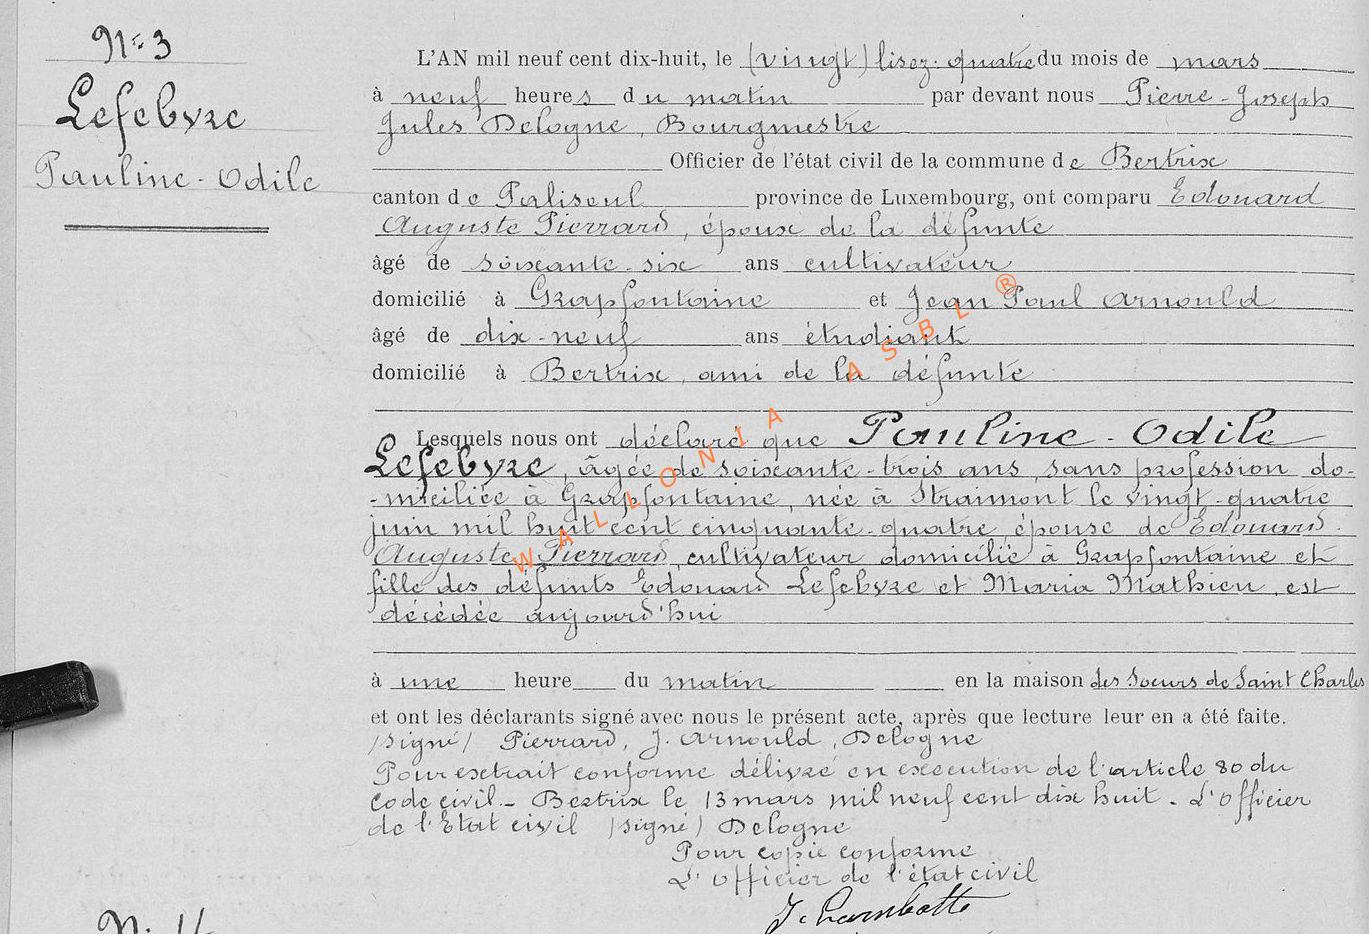 N° 3
Lefebvre
Pauline - Odile
L'AN mil neuf cent dix-huit, le (vingt) lisez. quatre du mois de mars
à neuf heures du matin par devant nous Pierre - Joseph
Jules Delogne, Bourgmestre
Officier de l'état civil de la commune de Bertrix
canton de Paliseul province de Luxembourg, ont comparu Edouard
Auguste Pierrard, époux de la défunte
âgé de soixante-six ans cultivateur
domicilié à Grapfontaine et Jean Paul Arnould
âgé de dix-neuf ans étudiant
domicilié à Bertrix, ami de la défunte
Lesquels nous ont déclaré que Pauline - Odile
Lefebvre, âgée de soixante-trois ans, sans profession do-
-miciliée à Grapfontaine, née à Straimont le vingt-quatre
juin mil huit cent cinquante-quatre, épouse de Edouard-
Auguste Pierrard, cultivateur domicilié à Grapfontaine et
fille des défunts Edouard Lefebvre et Maria Mathieu, est
décédée aujourd'hui
à une heure du matin en la maison des Soeurs de Saint Charles
et ont les déclarants signé avec nous le présent acte, après que lecture leur en a été faite.
/signé/ Pierrard, J. Arnould, Delogne
Pour extrait conforme délivré en exécution de l'article 80 du
code civil - Bertrix le 13 mars mil neuf cent dix huit - L'Officier
de l'Etat civil /signé/ Delogne
Pour copie conforme
L'Officier de l'état civil
J. Lambotte
N° 4
WALLONIA ASBL ®